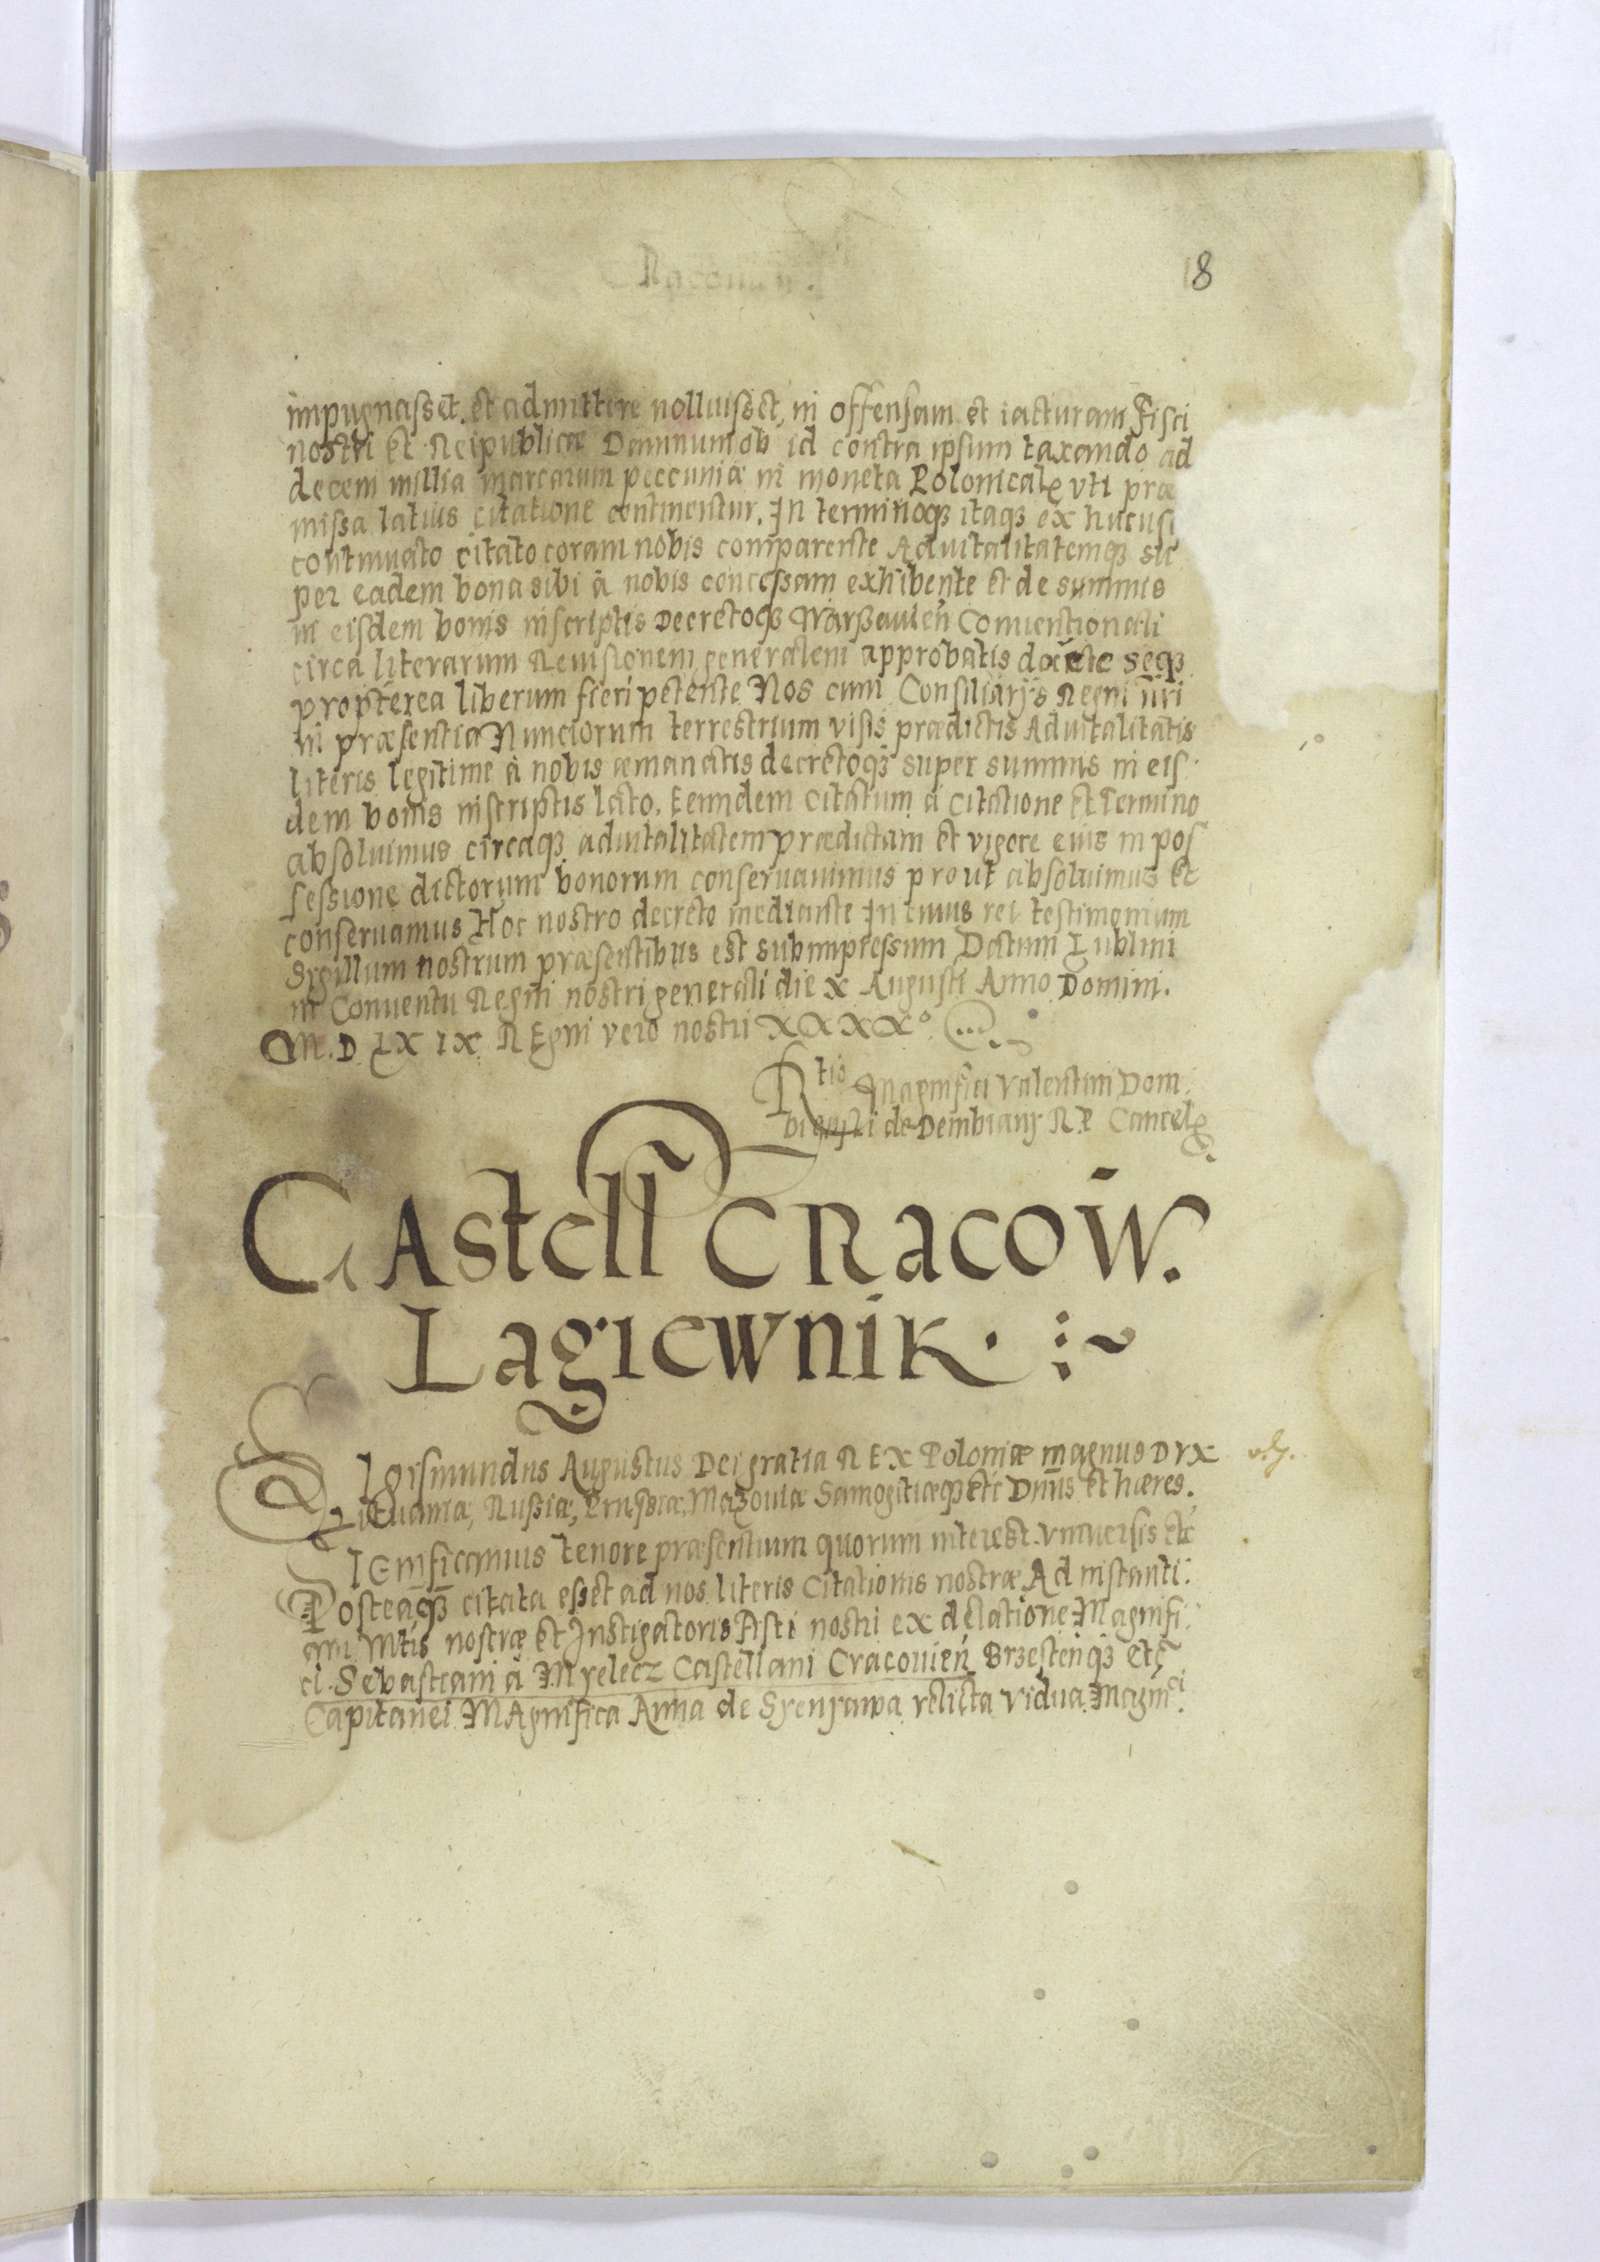 18
impugnasset. et admittere nolluisset, in offensam et iacturam Fisci
nostri et Reipublicæ Damnum ob id contra ipsum taxando ad
decem millia marcarum peccuniæ in moneta Polonicalę vti præ
missa latius citatione continentur. In terminoqȝ itaqȝ ex hucusqȝ
continuato citato coram nobis comparente Aduitalitatemqȝ su
per eadem bona sibi à nobis concessam exhibente et de summis
in eisdem bonis inscriptis Decretoqȝ Warßauień Conuentionali
circa literarum Reuisionem generalem approbatis docente seqȝ
propterea liberum fieri petente Nos cum Consiliarijs Regni nri
in præsentia Nunciorum terrestrium visis prædictis Aduitalitatis
literis legitime à nobis æmanatis decretoqȝ super summis in eis
dem bonis inscriptis lato. Eeundem Citatum à Citatione et Termino
absoluimus circaqȝ aduitalitatem prædictam et vigore eius in pos
sessione dictorum bonorum conseruauimus prout absoluimus et
conseruamus Hoc nostro decreto mediante In cuius rei testimonium
Sigillum nostrum præsentibus est subimpressum Datum Lublini
in Conuentu Regni nostri generali die X Augusti Anno Domini.
M.D LX IX REgni vero nostri XXXX°
Rtio Magnifici Valentini Dom
bienski de Dembiany R.P Cancelę
CAstell CRacow.
Lagiewnik.
SIgismundus Augustus Dei gratia REX Poloniæ magnus DVX
Lituaniæ, Rußiæ, Prußiæ, Mazouiæ Samogitiæqȝ etc Dnus et hæres.
SIGnificamus tenore præsentium quorum interest. vniuersis etc
Posteaqȝ citata esset ad nos literis Citationis nostræ Ad instanti
am Mtis nostræ et Instigatoris Fisci nostri ex delatione Magnifi
ci. Sebastiani à Myelecz Castellani Cracouień Brzestenqȝ etc
Capitanei MAgnifica Anna de Syenyawa relicta vidua Magnci